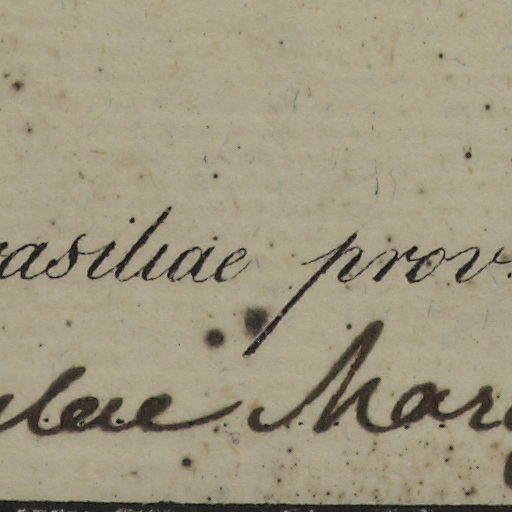 rasiliae prov.
ulae Marg